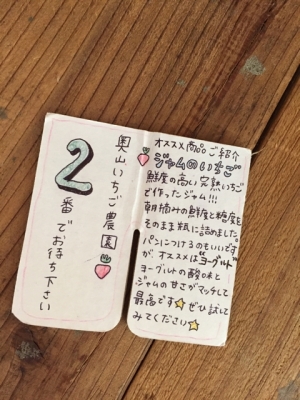 オススメ商品ご紹介
ジャムのいちご
鮮度の高い完熟いちご
で作ったジャム!!!
朝摘みの鮮度と糖度を
そのまま瓶に詰めました
パンにつけるのもいいです
が、オススメは"ヨーグルト"
ヨーグルトの酸味と
ジャムの甘さがマッチして
最高です ぜひ試して
みてください
奥山いちご農園
2
番でお待ち下さい